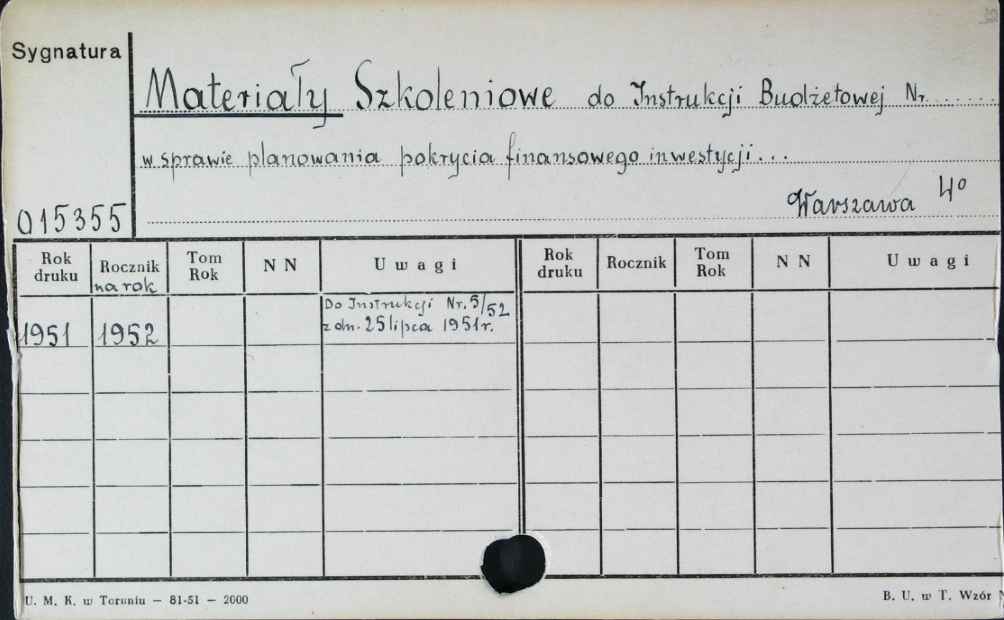 Sygnatura
Materiały Szkoleniowe do Instrukcji Budżetowej Nr......
w sprawie planowania pokrycia finansowego inwestycji...
Warszawa 4°
015355
Rok druku Rocznik na rok Tom Rok N N Uwagi Rok druku Rocznik Tom Rok N N Uwagi
1951 1952 Do Instrukcji Nr. 5/52
z dn. 25 lipca 1951 r.
U. M. K. w Toruniu — 81-51 — 2000
B. U. w T. Wzór